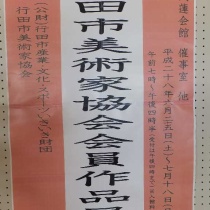 蓮会館 催事室 他
平成二十八年六月二五日(土)~七月十八日(
午前七時~午後四時半
田市美術家協会会員作品
(公財)行田市産業・文化・スポーツいきいき財団
行田市美術家協会